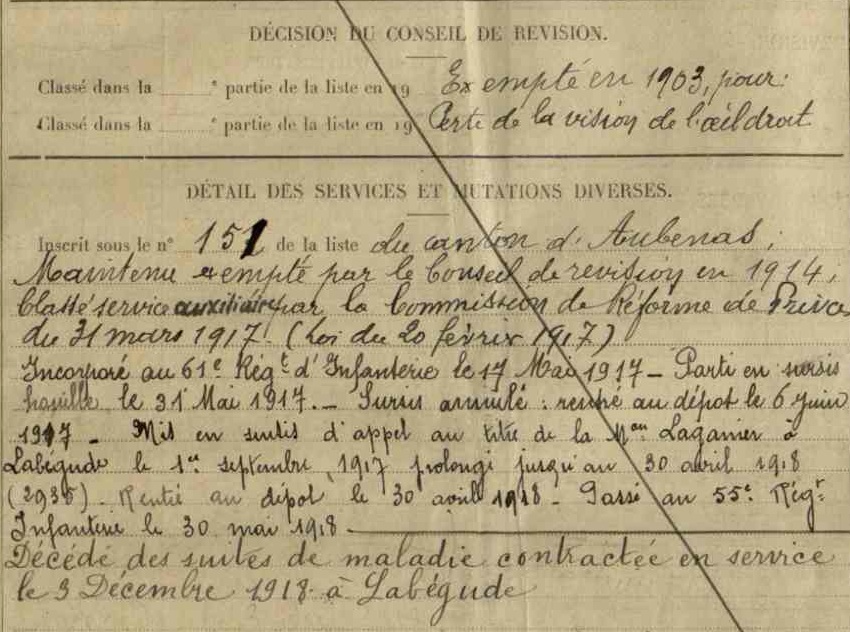 DÉCISION DU CONSEIL DE REVISION.
Classé dans la e partie de la liste en 19 Exempté en 1903, pour:
Classé dans la e partie de la liste en 19 Perte de la vision de l'œil droit
DÉTAIL DES SERVICES ET MUTATIONS DIVERSES.
Inscrit sous le n° 151 de la liste du canton d'Aubenas;
Maintenu exempté par le Conseil de revision en 1914;
Classé service auxiliaire par la Commission de Réforme de Privas
du 31 mars 1917. (Loi du 20 février 1917)
Incorporé au 61e Régt d'Infanterie le 17 Mai 1917 - Parti en sursis
houille le 31 Mai 1917. - Sursis annulé: rentré au dépot le 6 juin
1917 - Mis en sursis d'appel au titre de la Mon Laganier à
Labégude le 1er septembre 1917 prolongé jusqu'au 30 avril 1918
(2935) - Rentré au dépot le 30 avril 1918 - Passé au 55e Régt
Infanterie le 30 mai 1918 -
Décédé des suites de maladie contractée en service
le 3 Décembre 1918 à Labégude